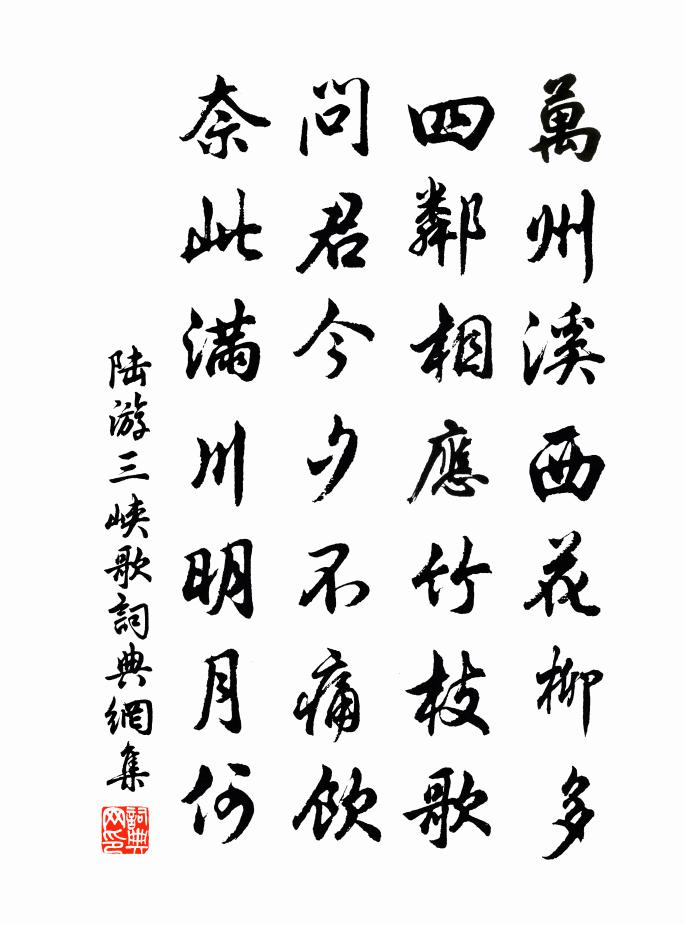 萬州溪西花柳多
四鄰相應竹枝歌
問君今夕不痛飲
奈此滿川明月何
陆游三峡歌詞典網集
詞典网印